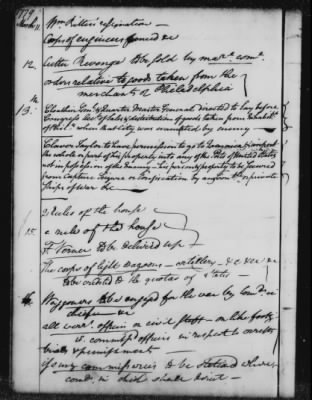 1779
March 11
Wm. resignation —
Corps of engineers formed &c
12. Cutter Revenge to be sold by mare. come.
orders relative to goods taken from the
merchants of Philadelphia
13. Clothier Genl. & Quarter Master General directed to lay before
Congress accts. of sales & distribution of goods taken from inhabts.
of Phila. when that city was evacuated by enemy —
Taylor to have permission to go to Jamaica & import
the whole or part of his property into any of the Ports of United States
not in possession of the Enemy — his person & property to be secured
from Capture Seizure or Confiscation by any cont. or private
Ships of war &c —
2 rules of the house
15. a rule of the house
F. to be delivered up —
The corps of light dragoons — artillery — &c &c &c
to be credited to the quotas of states —
16. Waggoners to be engaged for the war by Comdr. in
chief — &c
all warrt. officers on civil staff — on like footg.
w. commissd. officers in respect to arrests
trials & punishment —
commissaries to be stationed where
comdr. in chief shall direct —